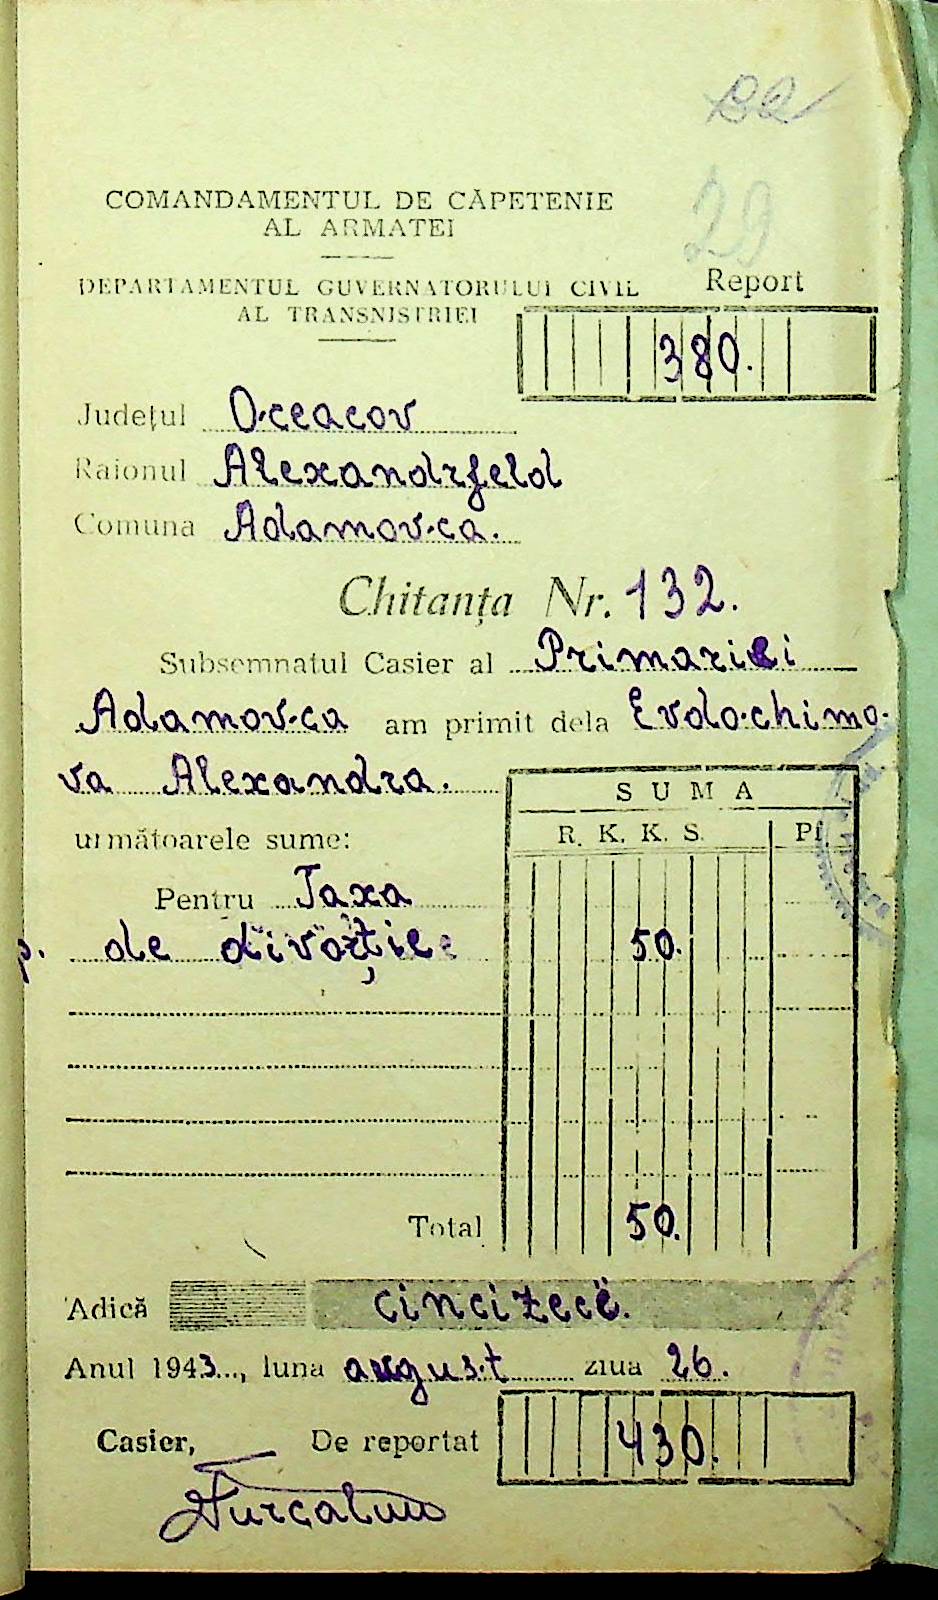 29
COMANDAMENTUL DE CĂPETENIE
AL ARMATEI
DEPARTAMENTUL GUVERNATORULUI CIVIL
AL TRANSNISTRIEI
Report
380.
Județul Oceacov
Raionul Alexandrfeld
Comuna Adamovca.
Chitanța Nr. 132.
Subsemnatul Casier al Primariei
Adamovca am primit dela Evdochimo-
va Alexandra.
următoarele sume:
SUMA
R. K. K. S. Pf
Pentru Taxa
p. de divorție 50.
Total 50.
Adică cincizece.
Anul 1943..., luna august ziua 26.
Casier, De reportat 430.